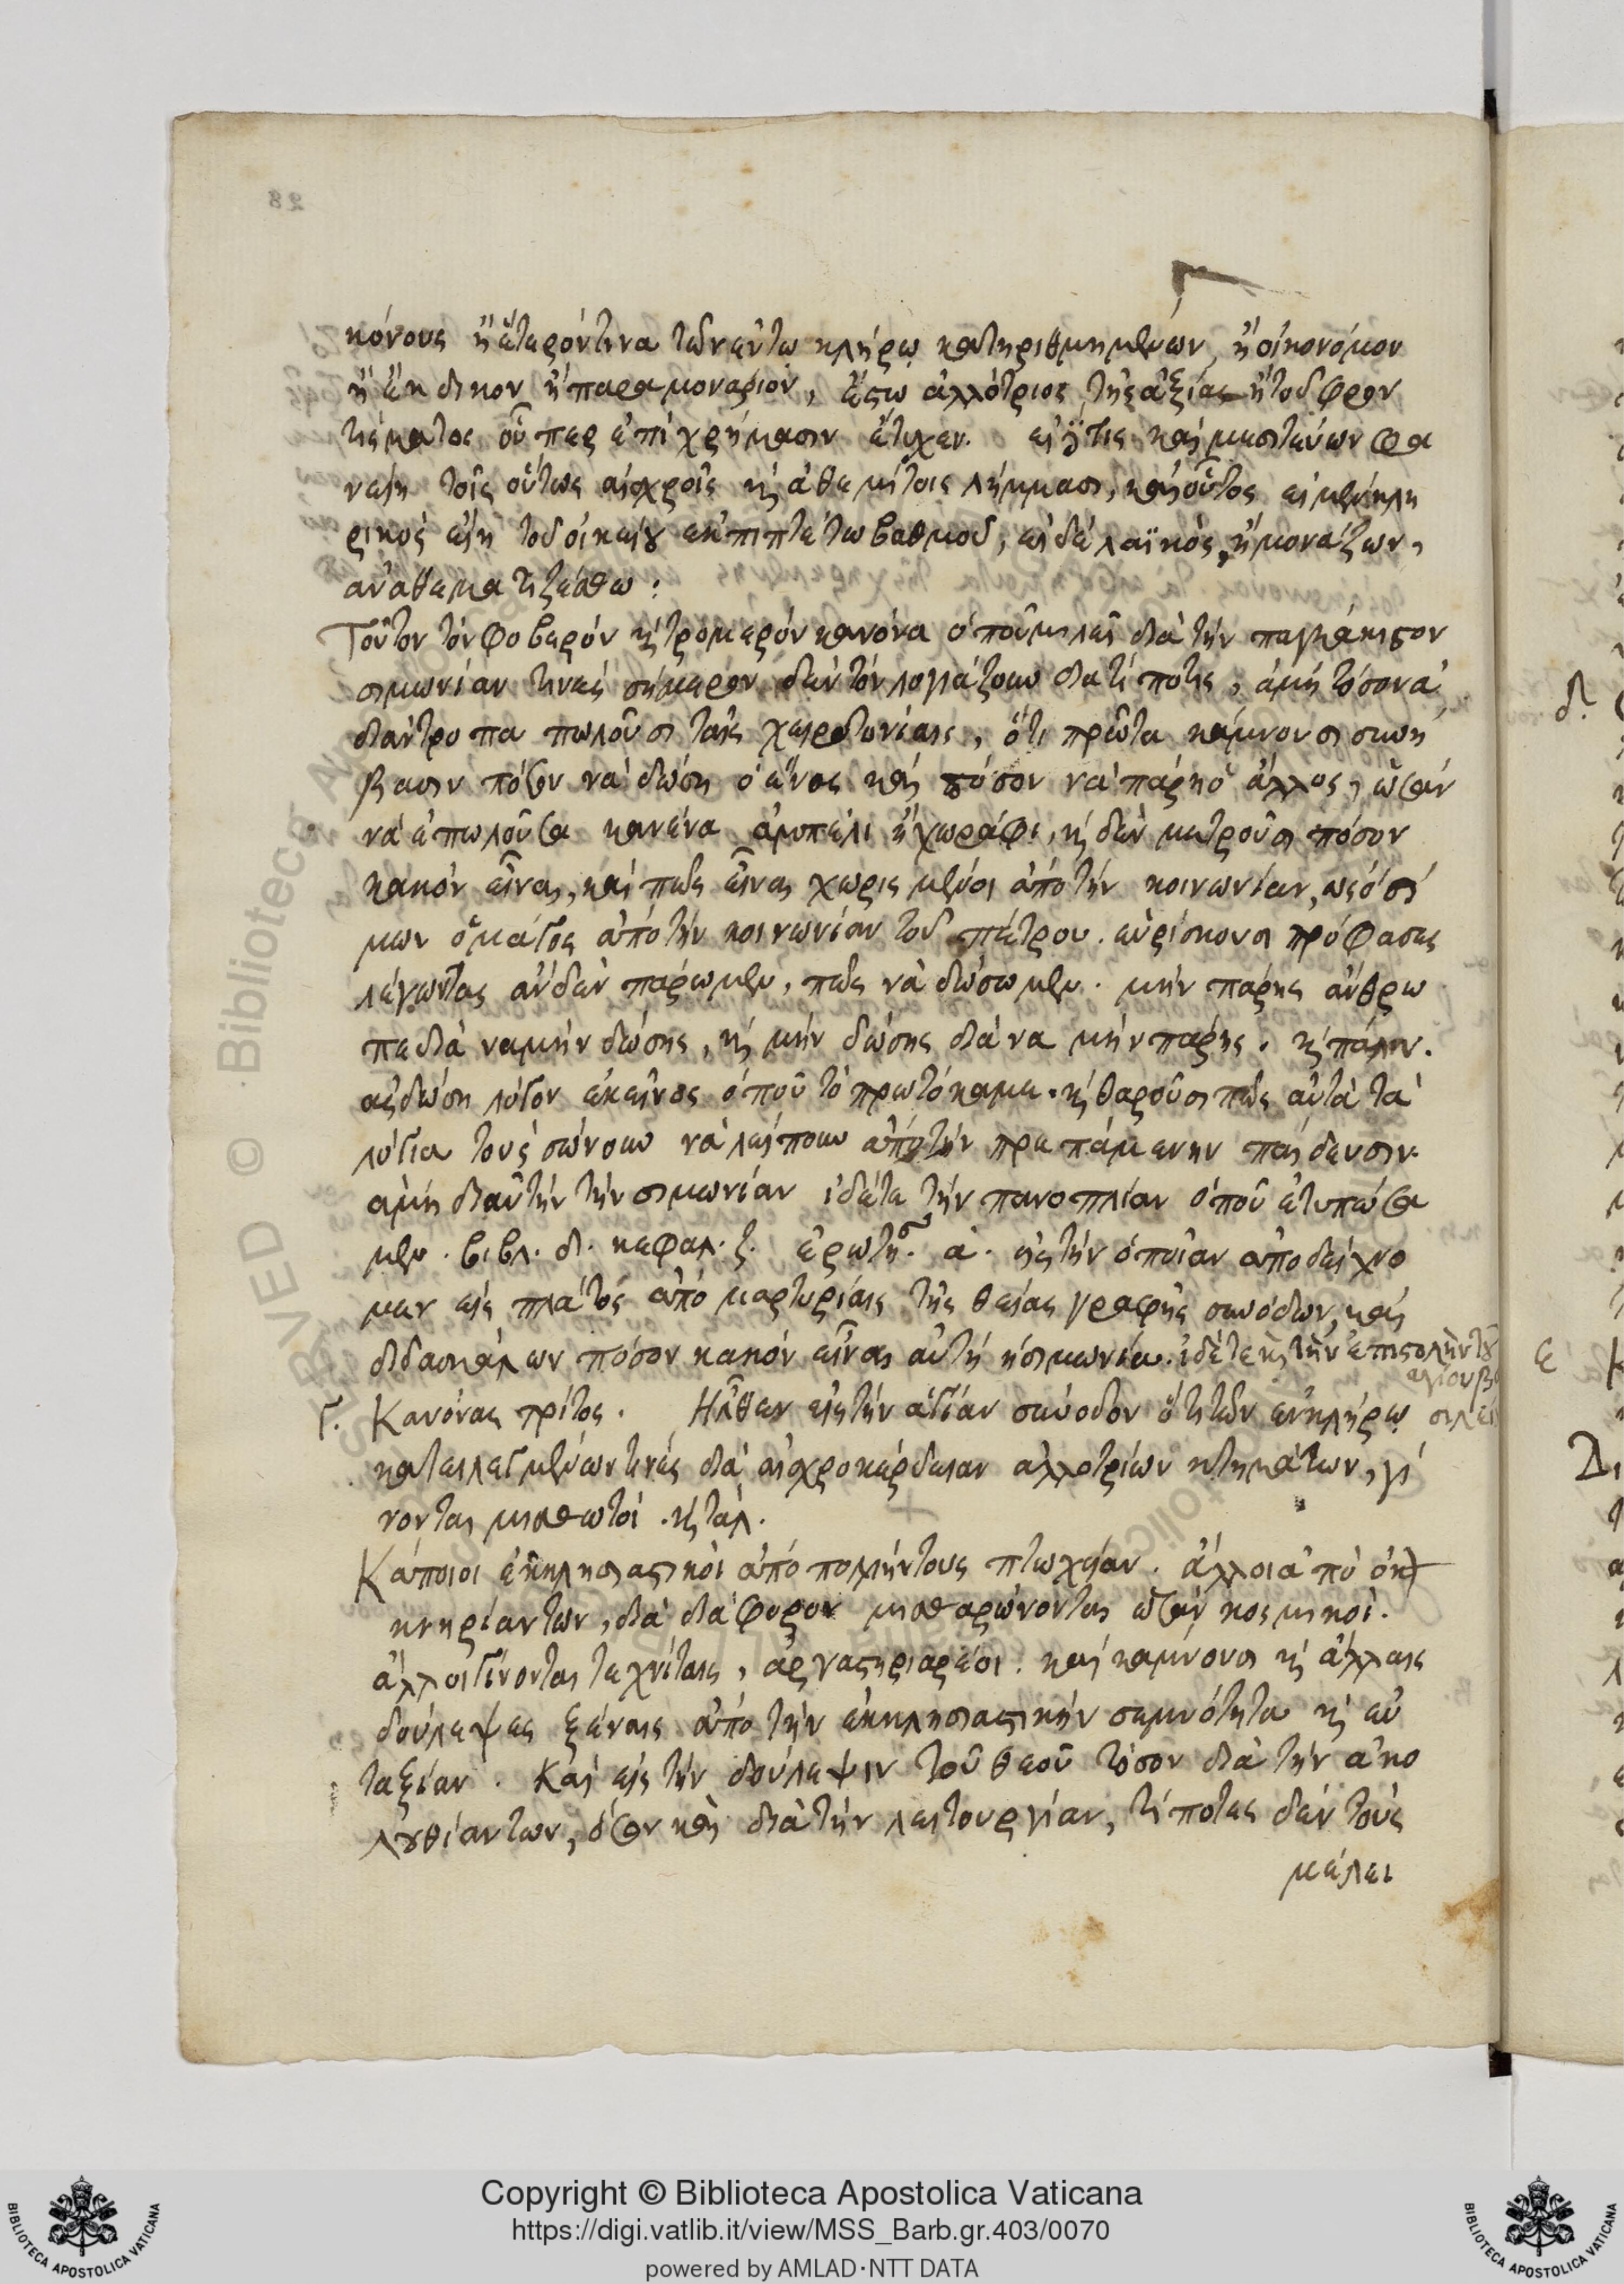 28
κόνους ἢ ἕτερόν τινα τῶν ἐν τῷ κλήρῳ κατηριθμημένων, ἢ οἰκονόμον
ἢ ἔκδικον ἢ παραμονάριον, ἔστω ἀλλότριος τῆς ἀξίας ἢ τοῦ φρον
τίσματος οὗπερ ἐπὶ χρήμασιν ἔτυχεν. εἰ δέ τις καὶ μεσιτεύων φα
νείη τοῖς οὕτως αἰσχροῖς κ̀ ἀθεμίτοις λήμμασι, καὶ οὗτος εἰ μὲν κλη
ρικὸς εἴη τοῦ οἰκείου ἐκπιπτέτω βαθμοῦ, εἰ δὲ λαϊκὸς, ἢ μονάζων,
ἀναθεματιζέσθω :
Τοῦτον τὸν φοβερὸν κ̀ τρομερὸν κανόνα ὁποῦ μιλεῖ διὰ τὴν παγκάκιστον
σιμωνίαν τινὲς σήμερον δὲν τὸν λογιάζουν διὰ τίποτες, ἀμὴ τόσον ἀ
διάντροπα πωλοῦσι ταῖς χειροτονίαις, ὅτι πρῶτα κάμνουσι συνή
βασιν πόσον νὰ δώσῃ ὁ ἕνας καὶ πόσον νὰ πάρῃ ὁ ἄλλος, ὡσὰν
νὰ ἐπωλοῦσα κανένα ἀμπέλι ἢ χωράφι, κ̀ δὲν μετροῦσι πόσον
κακὸν εἶναι, καὶ πῶς εἶναι χωρισμένοι ἀπὸ τὴν κοινωνίαν, ὡς ὁ σί
μων ὁ μάγος ἀπὸ τὴν κοινωνίαν τοῦ πέτρου. εὑρίσκουσι πρόφασες
λέγωντας ἂν δὲν πάρωμεν, πῶς νὰ δώσωμεν. μὴν πάρῃς ἄνθρω
πε διὰ να μὴν δώσῃς, κ̀ μὴν δώσῃς διὰ να μὴν πάρῃς. κ̀ πάλιν.
ἂς δώσῃ λόγον ἐκεῖνος ὁποῦ τὸ πρωτόκαμε. κ̀ θαροῦσι πῶς αὐτὰ τὰ
λόγια τοὺς σώνουν νὰ λείπουν ἀπὸ τὴν πρεπάμενην παίδευσιν.
ἀμὴ δι αὐτὴν τὴν σιμωνίαν ἰδέτε τὴν πανοπλίαν ὁποῦ ἐτυπώσα
μεν. βιβλ. δ. κεφαλ. ζ. ἐρωτήσ. α. εἰς τὴν ὁποίαν ἀποδείχνο
μεν εἰς πλάτος ἀπὸ μαρτυρίαις τῆς θείας γραφῆς συνόδων, καὶ
διδασκάλων πόσον κακὸν εἶναι αὐτὴ ἡ σιμωνία. ἰδέτε κ̀ τὴν ἐπιστολὴν τοῦ
ἁγίου βα
σιλεί
Γ. Κανόνας τρίτος. Ἦλθεν εἰς τὴν ἁγίαν σύνοδον ὅτι τῶν ἐν κλήρῳ
κατειλεγμένων τινὲς διὰ αἰσχροκέρδειαν ἀλλοτρίων κτημάτων, γί
νονται μισθωτοί. κ̀ ταλ.
Κάποιοι ἐκκλησιαστικοὶ ἀπὸ πολλήν τους πτωχείαν. ἄλλοι ἀπὸ ὀκ
νηρίαν των, διὰ διάφορον μισθαρώνονται ὡσὰν κοσμικοί.
ἄλλοι γίνονται τεχνίταις, ἀργαστηριαρέοι. καὶ κάμνουσι κ̀ ἄλλαις
δούλεψες ξέναις ἀπὸ τὴν ἐκκλησιαστικὴν σεμνότητα κ̀ εὐ
ταξίαν. Καὶ εἰς τὴν δούλεψιν τοῦ θεοῦ τόσον διὰ τὴν ἀκο
λουθίαν των, ὅσον καὶ διὰ τὴν λειτουργίαν, τίποτες δὲν τοὺς
μέλει
δ.
ε
Copyright © Biblioteca Apostolica Vaticana
https://digi.vatlib.it/view/MSS_Barb.gr.403/0070
powered by AMLAD·NTT DATA
BIBLIOTECA APOSTOLICA VATICANA
BIBLIOTECA APOSTOLICA VATICANA